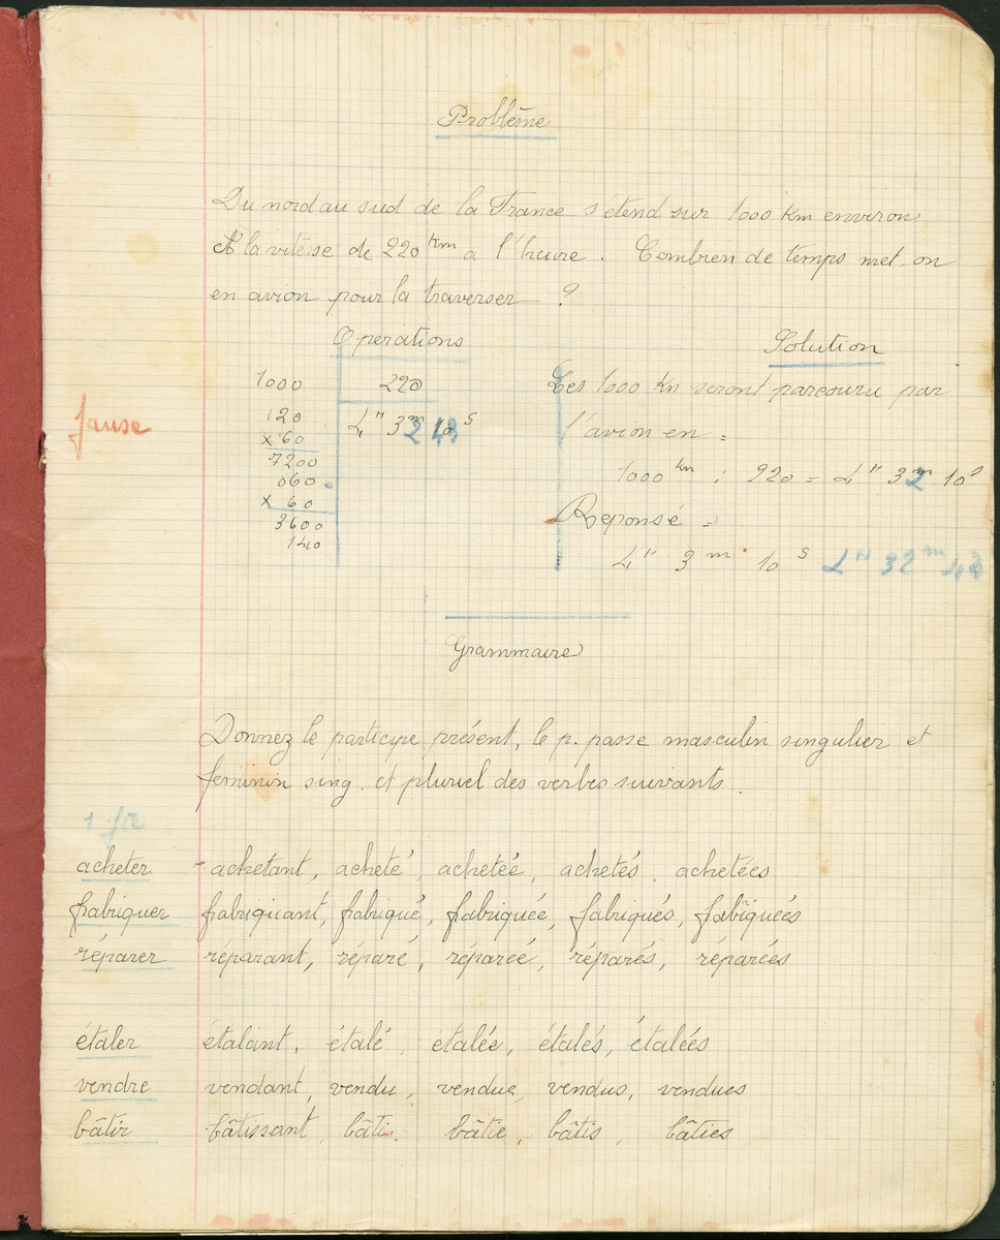 Problème
Du nord au sud de la France s'étend sur 1000 Km environ
A la vitesse de 220 km a l'heure. Combien de temps met-on
en avion pour la traverser ?
Operations
Solution
1000 220
Les 1000 Km seront parcouru par
fause
120 4 H 32 m 43 S
l'avion en =
x 60
7200
060
1000 km : 220 = 4 H 32 m 10 s
x 60
Reponsé =
3600
140
4 H 3 m 10 S 4 H 32 m 43
Grammaire
Donnez le participe présent, le p. passe masculin singulier et
feminin sing. et pluriel des verbes suivants.
1 f
acheter - achetant, acheté, achetée, achetés, achetées
fabriquer fabriquant, fabriqué, fabriquée, fabriqués, fabriquées
réparer réparant, réparé, réparée, réparés, réparées
étaler étalant, étalé, étalée, étalés, étalées
vendre vendant, vendu, vendue, vendus, vendues
bâtir bâtissant, bâti, bâtie, bâtis, bâties